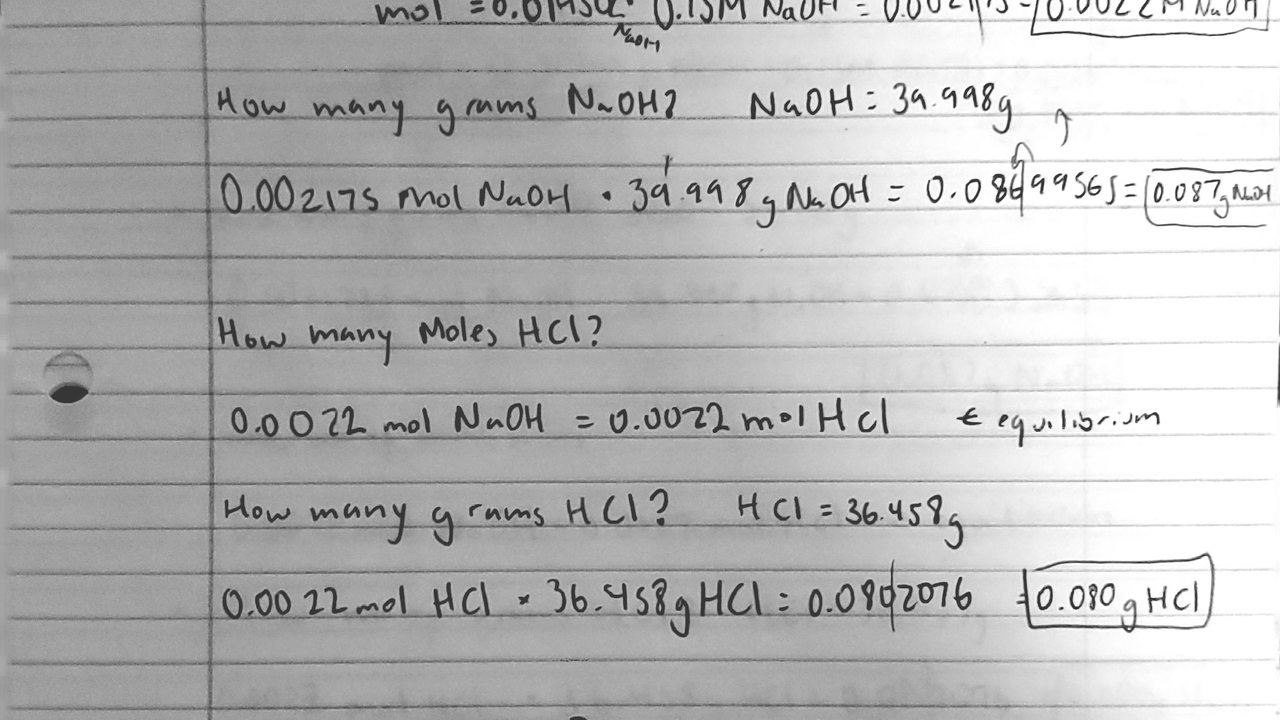 mol = 0.01450L · 0.15M NaOH = 0.002175 = 0.0022 M NaOH
NaOH
How many grams NaOH? NaOH = 39.998g
0.002175 mol NaOH · 39.998g NaOH = 0.08699565 = 0.087g NaOH
How many Moles HCl?
0.0022 mol NaOH = 0.0022 mol HCl € equilibrium
How many grams HCl? HCl = 36.458g
0.0022 mol HCl · 36.458g HCl = 0.0802076 = 0.080 g HCl